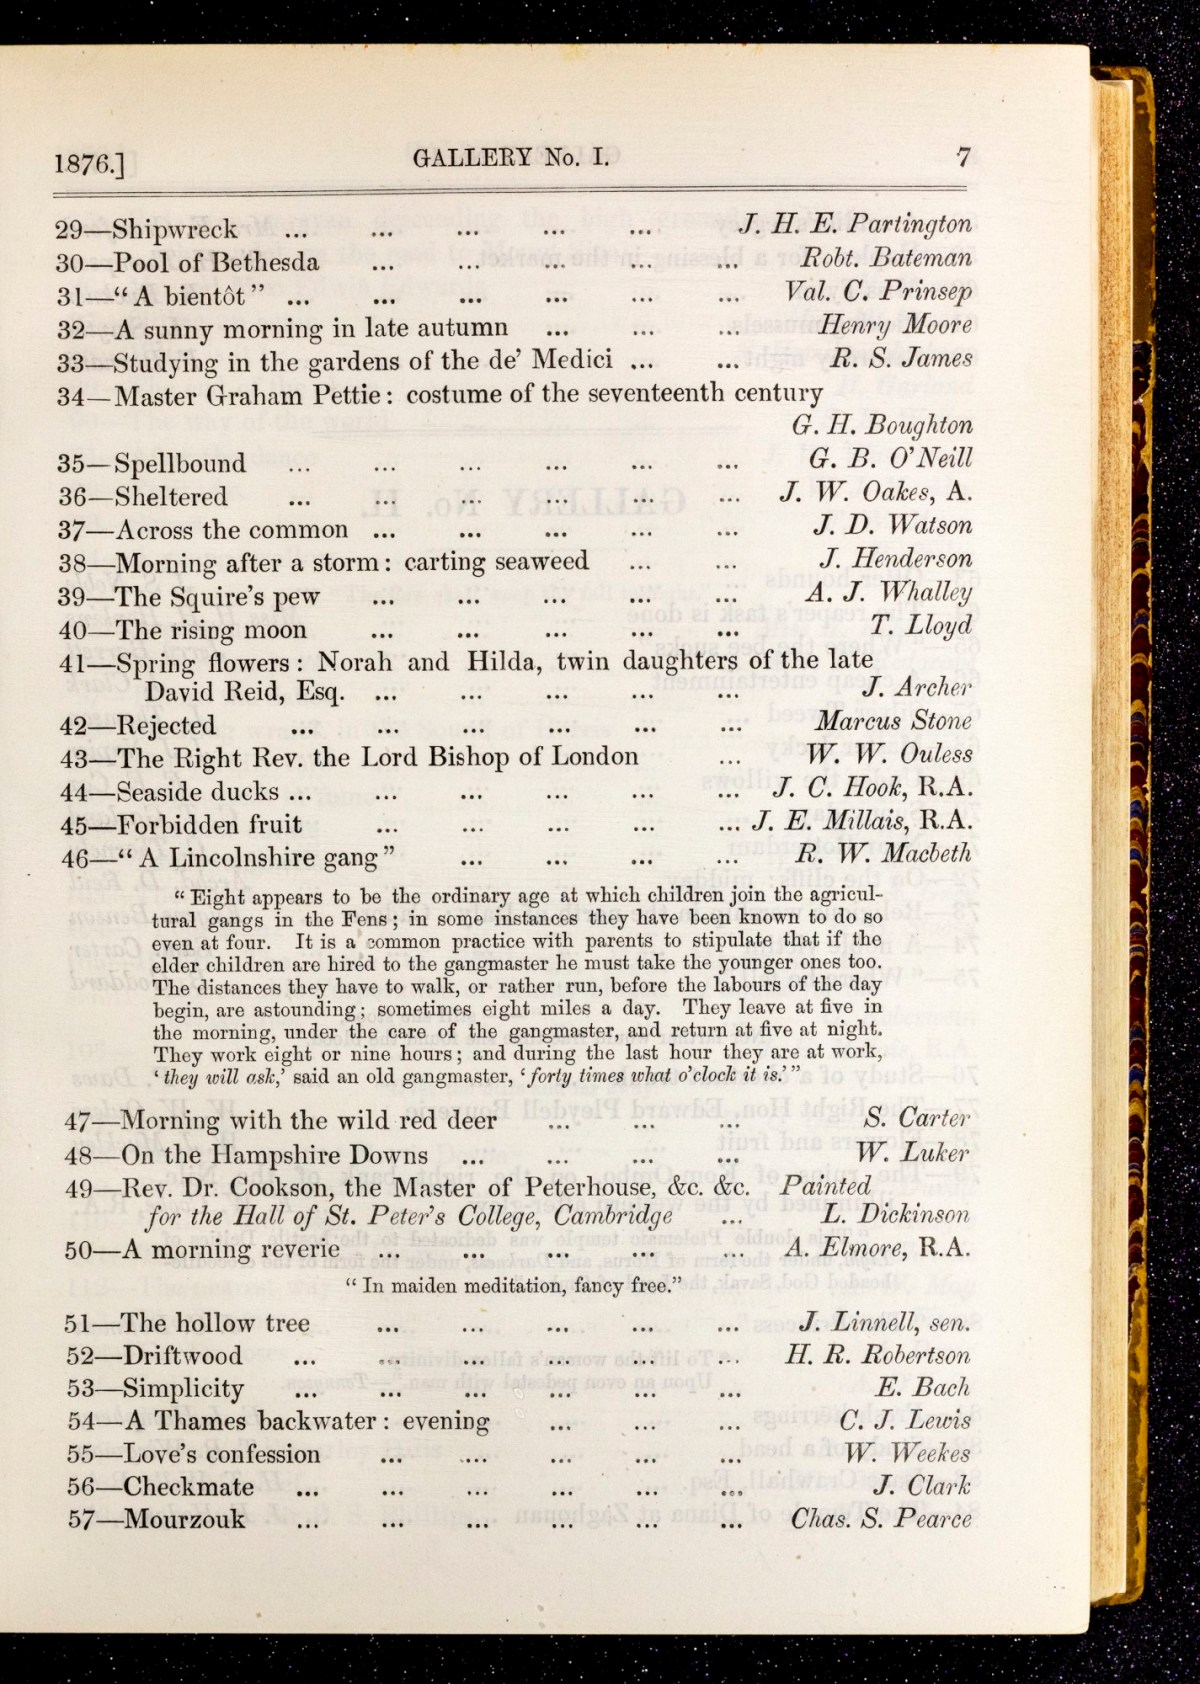 1876.] GALLERY No. I. 7
29—Shipwreck ... ... ... ... ... J. H. E. Partington
30—Pool of Bethesda ... ... ... ... ... Robt. Bateman
31—“A bientôt” ... ... ... ... ... ... Val. C. Prinsep
32—A sunny morning in late autumn ... ... ... Henry Moore
33—Studying in the gardens of the de’ Medici ... ... R. S. James
34—Master Graham Pettie: costume of the seventeenth century
G. H. Boughton
35—Spellbound ... ... ... ... ... ... G. B. O’Neill
36—Sheltered ... ... ... ... ... ... J. W. Oakes, A.
37—Across the common ... ... ... ... ... J. D. Watson
38—Morning after a storm: carting seaweed ... ... J. Henderson
39—The Squire’s pew ... ... ... ... ... A. J. Whalley
40—The rising moon ... ... ... ... ... T. Lloyd
41—Spring flowers: Norah and Hilda, twin daughters of the late
David Reid, Esq. ... ... ... ... ... J. Archer
42—Rejected ... ... ... ... ... ... Marcus Stone
43—The Right Rev. the Lord Bishop of London ... W. W. Ouless
44—Seaside ducks ... ... ... ... ... ... J. C. Hook, R.A.
45—Forbidden fruit ... ... ... ... ... J. E. Millais, R.A.
46—“A Lincolnshire gang” ... ... ... ... R. W. Macbeth
“Eight appears to be the ordinary age at which children join the agricul-
tural gangs in the Fens; in some instances they have been known to do so
even at four. It is a common practice with parents to stipulate that if the
elder children are hired to the gangmaster he must take the younger ones too.
The distances they have to walk, or rather run, before the labours of the day
begin, are astounding; sometimes eight miles a day. They leave at five in
the morning, under the care of the gangmaster, and return at five at night.
They work eight or nine hours; and during the last hour they are at work,
‘they will ask,’ said an old gangmaster, ‘forty times what o’clock it is.’”
47—Morning with the wild red deer ... ... ... S. Carter
48—On the Hampshire Downs ... ... ... ... W. Luker
49—Rev. Dr. Cookson, the Master of Peterhouse, &c. &c. Painted
for the Hall of St. Peter’s College, Cambridge ... L. Dickinson
50—A morning reverie ... ... ... ... ... A. Elmore, R.A.
“In maiden meditation, fancy free.”
51—The hollow tree ... ... ... ... ... J. Linnell, sen.
52—Driftwood ... ... ... ... ... ... H. R. Robertson
53—Simplicity ... ... ... ... ... ... E. Bach
54—A Thames backwater: evening ... ... ... C. J. Lewis
55—Love’s confession ... ... ... ... ... W. Weekes
56—Checkmate ... ... ... ... ... ... J. Clark
57—Mourzouk ... ... ... ... ... ... Chas. S. Pearce